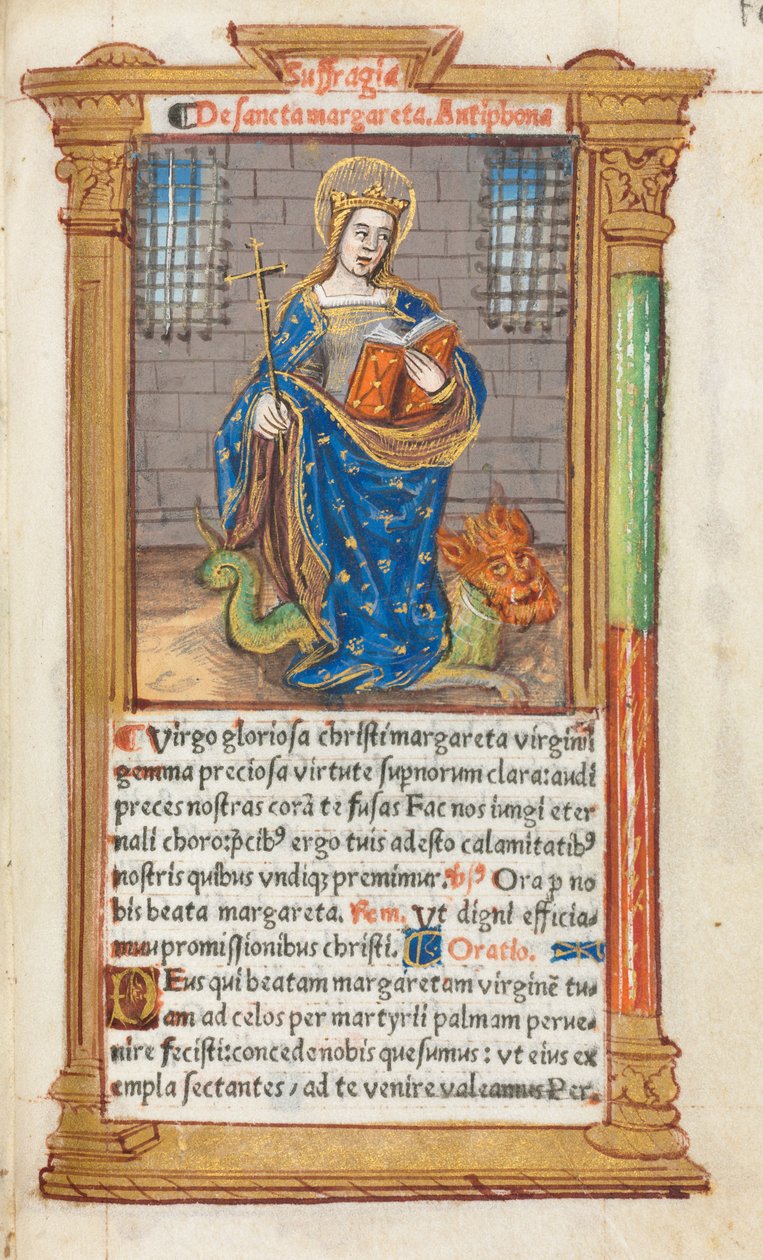 Suffragia
De sancta margareta. Antiphona
Virgo gloriosa christi margareta virginū
gemma preciosa virtute supnorum clara: audi
preces nostras corā te fusas Fac nos iungi eter
nali choro: p̄cibꝰ ergo tuis adesto calamitatibꝰ
nostris quibus vndiqꝫ premimur. Ora ꝓ no
bis beata margareta. Vt digni efficia⸗
mur promissionibus christi. Oratio.
DEus qui beatam margaretam virginē tu⸗
am ad celos per martyrii palmam perue⸗
nire fecisti: concede nobis quesumus: vt eius ex
empla sectantes / ad te venire valeamus Per.